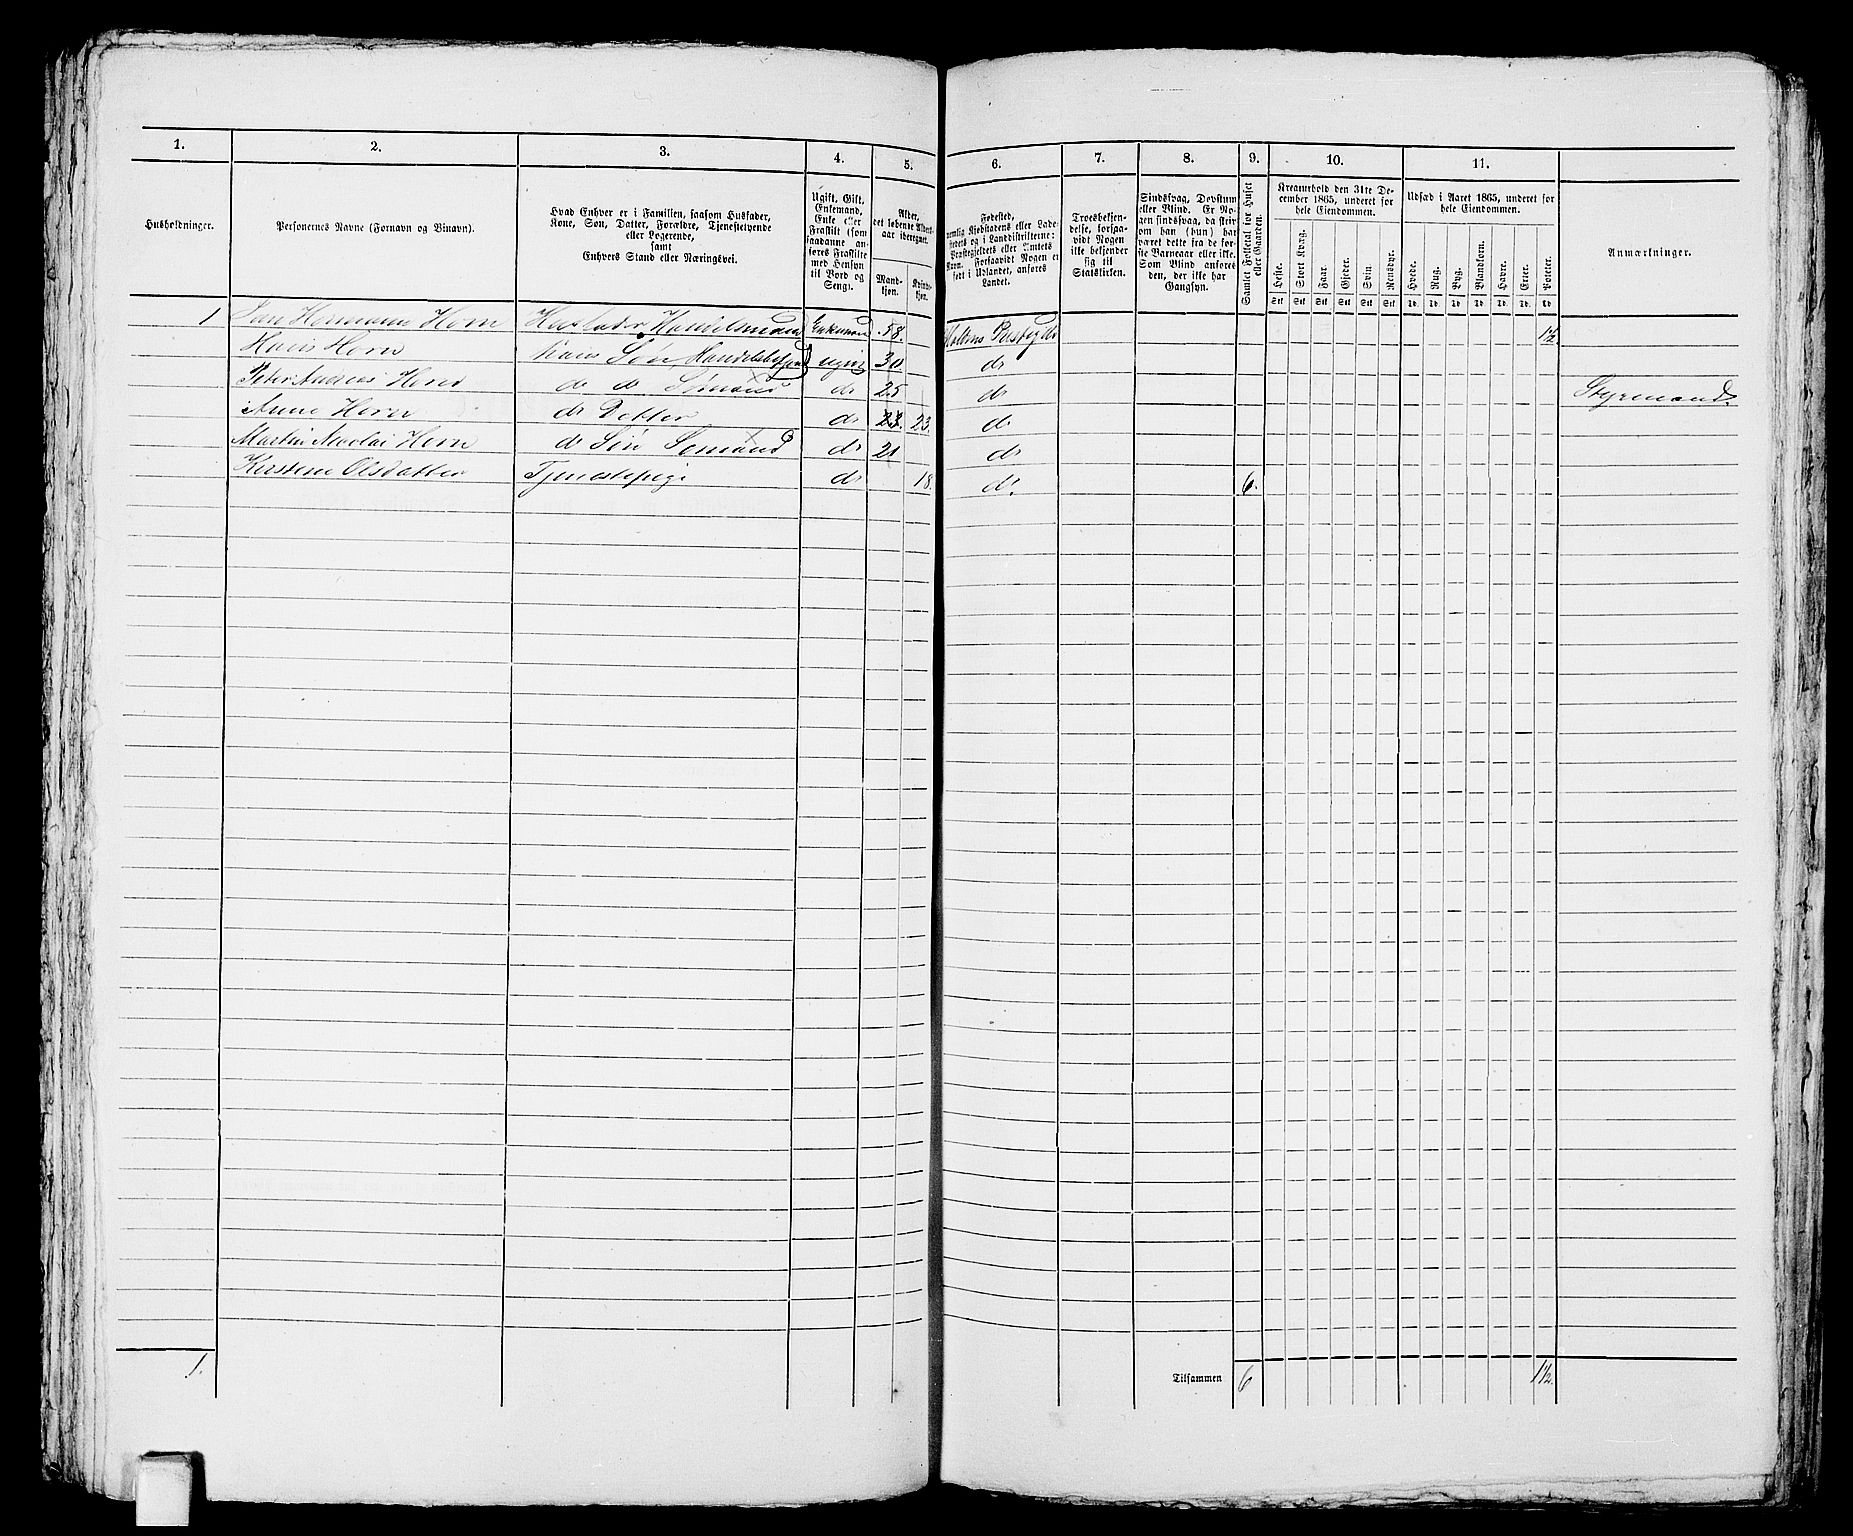 1. 2. 3. 4. 5. 6. 7. 8. 9. 10. 11.
Husholdninger.
Personernes Navne (Fornavn og Binavn).
Hvad Enhver er i Familien, saasom Husfader,
Kone, Søn, Datter, Forældre, Tjenestetyende
eller Logerende,
samt
Enhvers Stand eller Næringsvei.
Ugift, Gift,
Enkemand,
Enke eller
Fraskilt (som
saadanne an-
føres Fraskilte
med Hensyn
til Bord og
Seng).
Alder,
det løbende Alders-
aar iberegnet.
Mand-
kjøn.
Kvinde-
kjøn.
Fødested,
nemlig Kjøbstadens eller Lade-
stedets og i Landdistrikterne:
Præstegjeldets eller Amtets
Navn. Forsaavidt Nogen er
født i Udlandet, anføres
Landet.
Troesbekjen-
delse, forsaa-
vidt Nogen
ikke bekjender
sig til
Statskirken.
Sindssvag, Døvstum
eller Blind. Er No-
gen sindssvag, da skriv
om han (hun) har
været dette fra de før-
ste Barneaar eller ikke.
Som Blind anføres
den, der ikke har
Gangsyn.
Samlet Folketal for Huset
eller Gaarden.
Kreaturhold den 31te De-
cember 1865, underet for
hele Eiendommen.
Heste. Stort Kvæg. Faar. Gjeder. Svin Rensdyr.
Stk Stk Stk Stk Stk Stk
Udsæd i Aaret 1865, underet for
hele Eiendommen.
Hvede. Rug. Byg. Blandkorn. Havre. Erter. Poteter.
Td. Td. Td. Td. Td. Td. Td
Anmærkninger.
1 Jan Hermann Horn Husfader Handelsmand Enkemand 58. Holtens Præstegjeld 1½
Hans Horn hans Søn, ugivt 30 do
Peter Andreas Horn do do Sømand do 25 do Styrmand.
Anne Horn do Datter do 23. 23. do
Martin Nicolai Horn do Søn Sømand do 21 do
Kirstene Olsdatter Tjenestepige do 18. do. 6.
1. Tilsammen 6 1½.